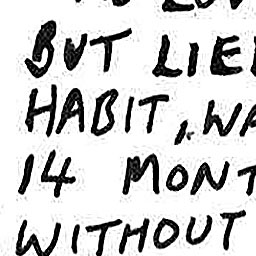 BUT LIE
HABIT, WA
14 MONT
WITHOUT